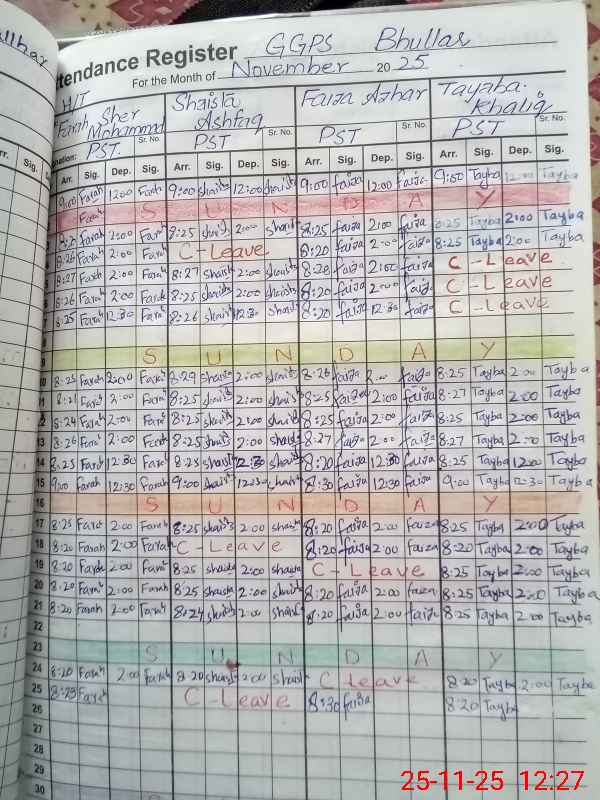 Attendance Register GGPS Bhullar
For the Month of November 2025
H/T
Farah Sher Mohammad
Shaista Ashfaq
Faiza Azhar
Tayzba Khaliq
PST PST PST PST
Sr. No. Sr. No. Sr. No.
Arr. Sig. Dep. Sig. Arr. Sig. Dep. Sig. Arr. Sig. Dep. Sig. Arr. Sig. Dep. Sig.
9:00 Farah 12:00 Farah 9:00 shaista 12:00 shaista 9:00 faiza 12:00 faiza 9:00 Tayba 12:00 Tayba
S U N D A Y
Farah 2:00 Farah 8:25 shaista 2:00 shaista 8:25 faiza 2:00 faiza 8:25 Tayba 2:00 Tayba
Farah 2:00 Farah C-Leave 8:20 faiza 2:00 faiza 8:25 Tayba 2:00 Tayba
8:27 Farah 2:00 Farah 8:27 shaista 2:00 shaista faiza 2:00 faiza C-Leave
8:26 Farah 2:00 Farah 8:25 shaista 2:00 shaista 8:20 faiza 2:00 faiza C-Leave
8:25 Farah 12:30 Farah 8:26 shaista 12:30 shaista 8:20 faiza 12:30 faiza C-Leave
9 S U N D A Y
10 8:25 Farah 2:00 Farah 8:29 shaista 2:00 shaista faiza faiza 8:25 Tayba 2:00 Tayba
11 8:21 Farah 2:00 Farah 8:25 shaista 2:00 shaista 8:25 faiza 2:00 faiza 8:27 Tayba 2:00 Tayba
12 8:24 Farah 2:00 Farah 8:25 shaista 2:00 shaista 8:25 faiza 2:00 faiza 8:25 Tayba 2:00 Tayba
13 8:26 Farah 2:00 Farah 8:25 shaista 2:00 shaista 8:27 faiza 2:00 faiza 8:27 Tayba 2:00 Tayba
14 8:25 Farah 12:30 Farah 8:25 shaista 12:30 shaista 8:20 faiza 12:30 faiza 8:25 Tayba 12:00 Tayba
15 9:00 Farah 12:30 Farah 9:00 shaista 12:30 shaista 8:30 faiza 12:30 faiza 9:00 Tayba 12:30 Tayba
16 S U N D A Y
17 8:25 Farah 2:00 Farah 8:25 shaista 2:00 shaista 8:20 faiza 2:00 faiza 8:25 Tayba 2:00 Tayba
18 8:20 Farah 2:00 Farah C-Leave 8:20 faiza 2:00 faiza 8:20 Tayba 2:00 Tayba
19 8:20 Farah 2:00 Farah 8:25 shaista 2:00 shaista C-Leave 8:25 Tayba 2:00 Tayba
20 8:20 Farah 2:00 Farah 8:25 shaista 2:00 shaista 8:20 faiza 2:00 faiza 8:25 Tayba 2:00 Tayba
21 8:20 Farah 2:00 Farah 8:24 shaista 2:00 shaista 8:20 faiza 2:00 faiza 8:25 Tayba 2:00 Tayba
22
23 S U N D A Y
24 8:20 Farah 2:00 Farah 8:20 shaista 2:00 shaista C Leave 8:20 Tayba 2:00 Tayba
25 8:23 Farah C-Leave 8:30 faiza 8:20 Tayba
26
27
28
29
30
25-11-25 12:27